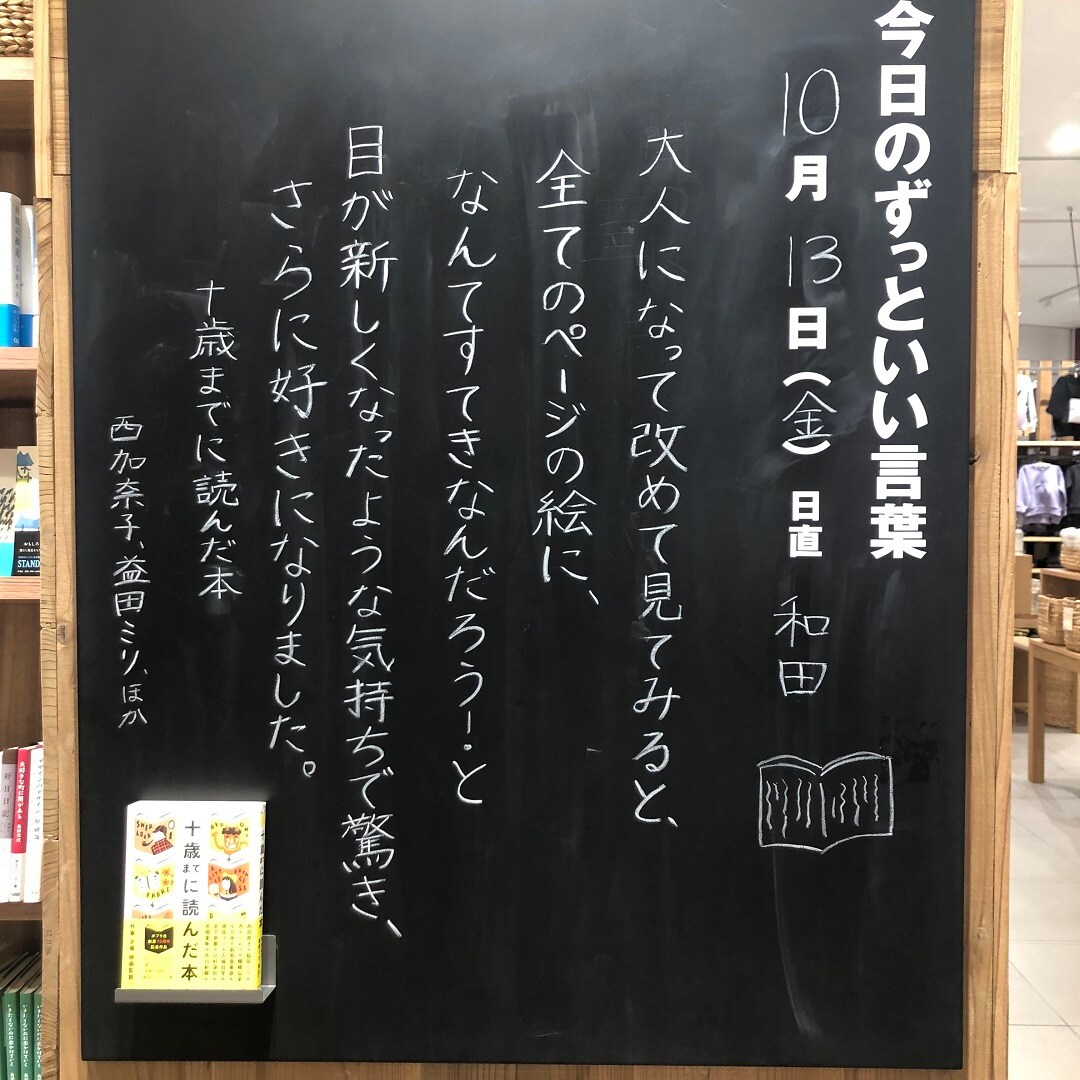 今日のずっといい言葉
10月13日(金) 日直 和田
大人になって改めて見てみると、
全てのページの絵に、
なんてすてきなんだろうー。と
目が新しくなったような気持ちで驚き、
さらに好きになりました。
十歳までに読んだ本
西加奈子、益田ミリ、ほか
十歳までに読んだ本
ポプラ社
STAND